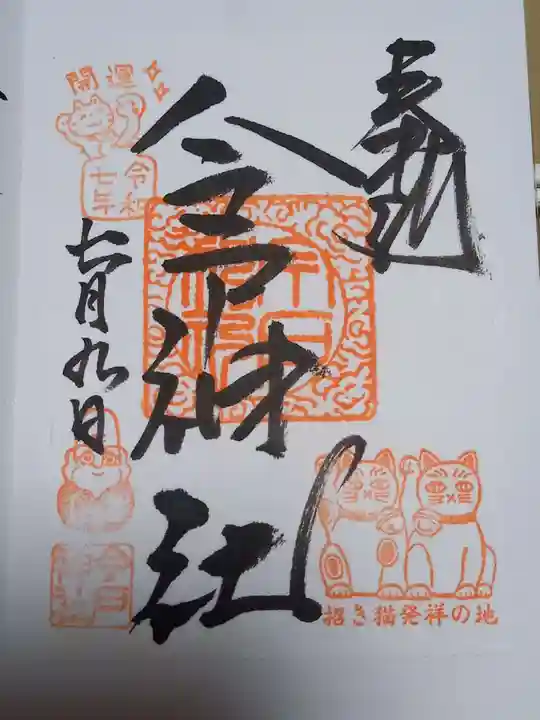 奉拝
今戸神社
開運
令和
七年
七月九日
招き猫発祥の地